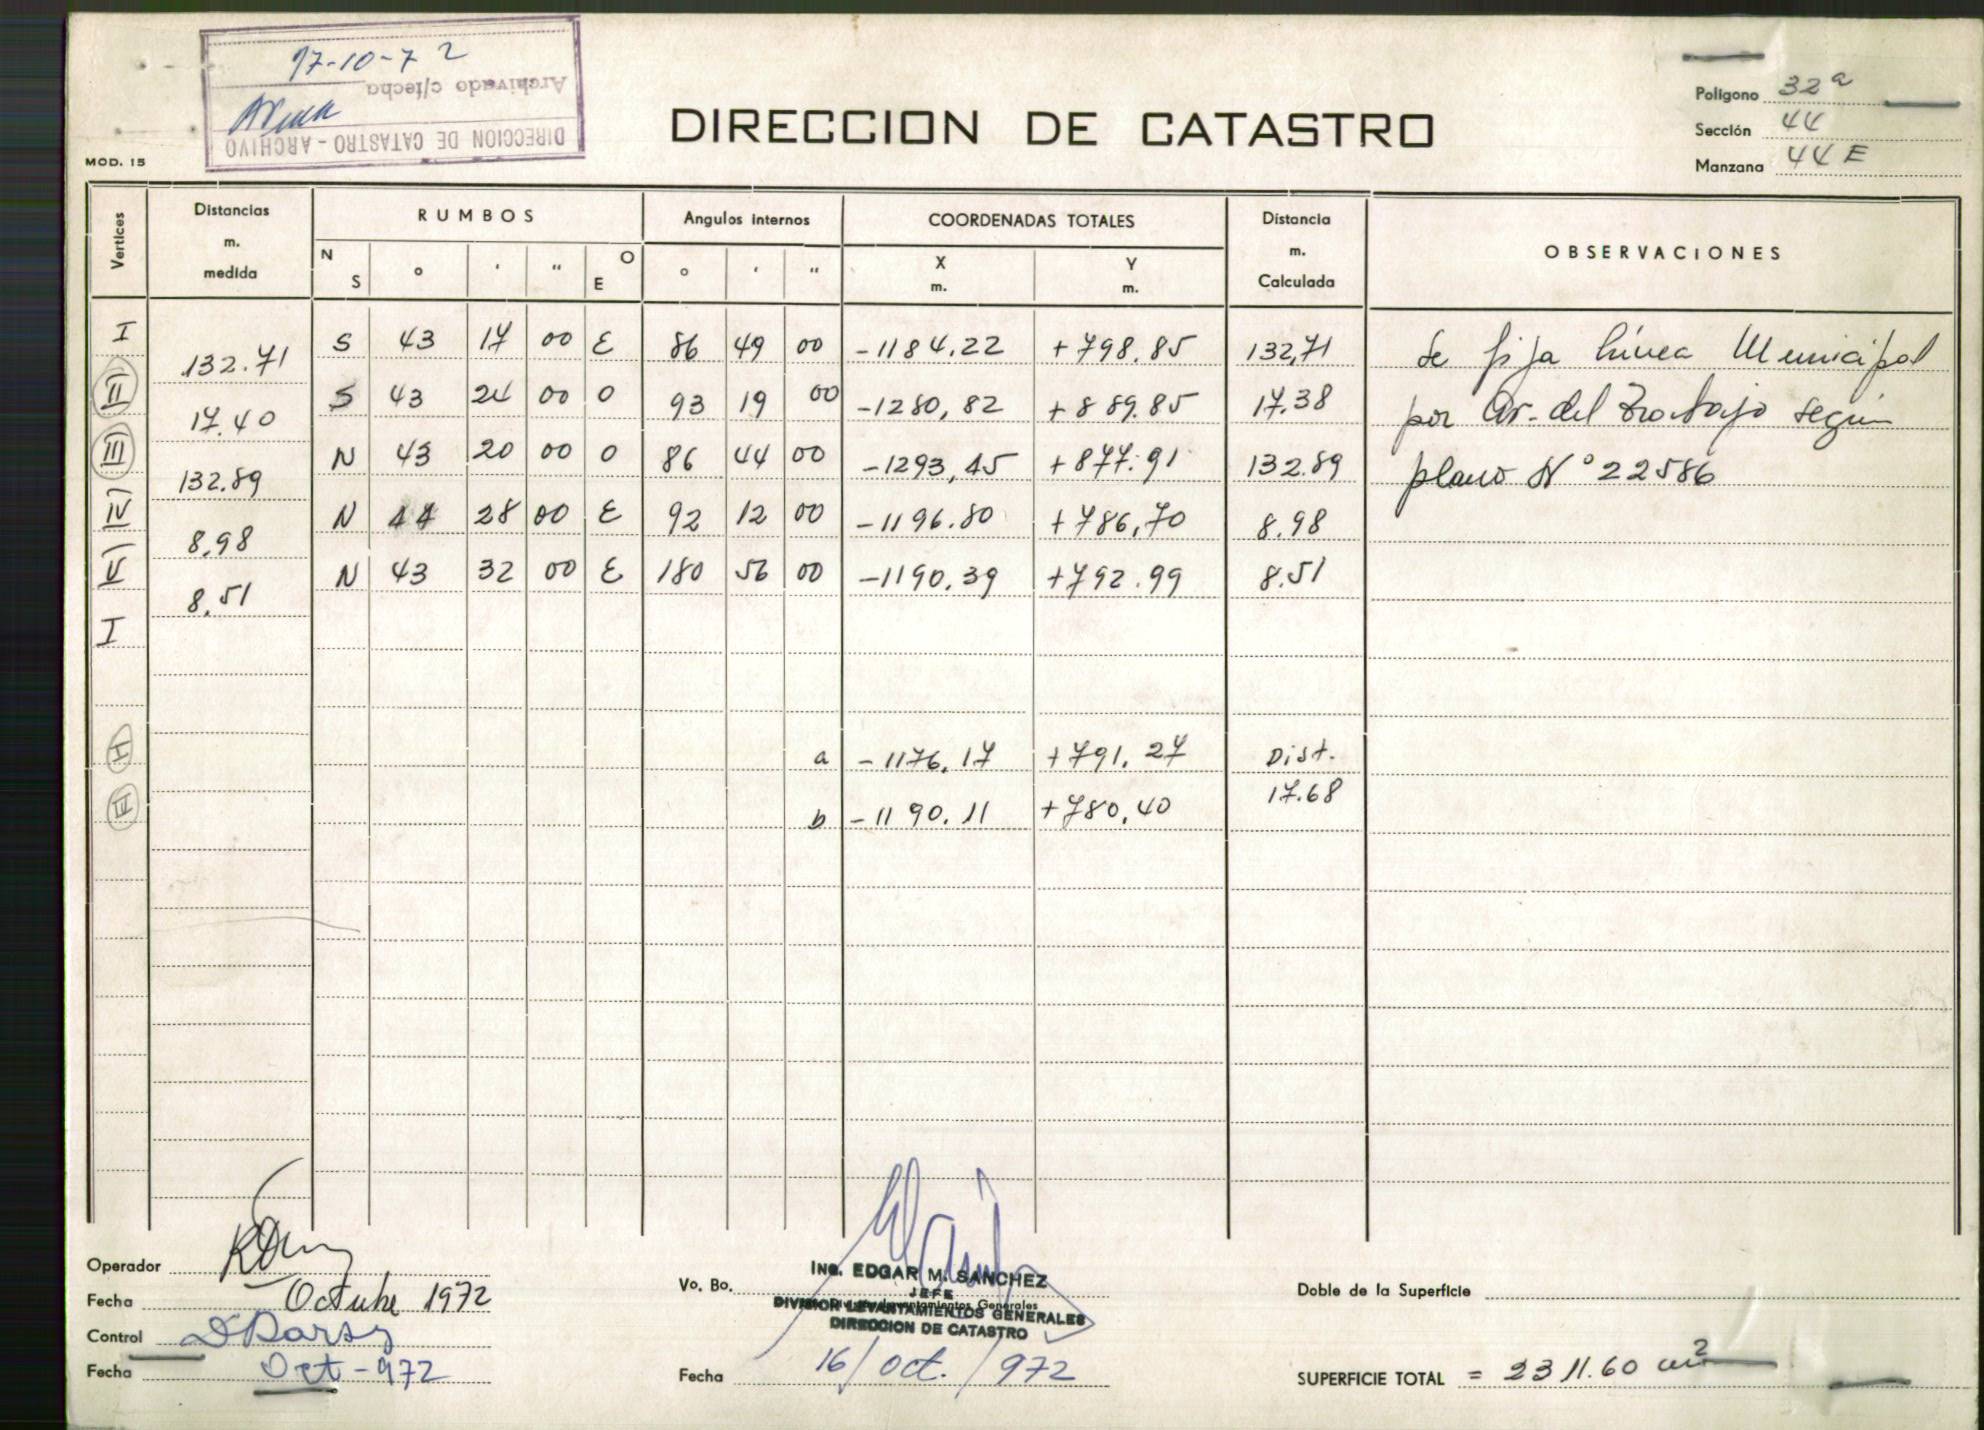 17-10-72
Archivado c/fecha
DIRECCION DE CATASTRO - ARCHIVO
MOD. 15
DIRECCION DE CATASTRO
Poligono 32ª
Sección 44
Manzana 44 E
Vertices
Distancias m. medida
RUMBOS
Angulos internos
COORDENADAS TOTALES
Distancia m. Calculada
OBSERVACIONES
N S ° ' " O E ° ' " X m. Y m.
I S 43 17 00 E 86 49 00 -1184.22 +798.85 132,71 Se fija Línea Municipal
132.71
II S 43 24 00 O 93 19 00 -1280,82 +889.85 17.38 por Av. del Trabajo según
17.40
III N 43 20 00 O 86 44 00 -1293,45 +877.91 132.89 plano N° 22586
132.89
IV N 44 28 00 E 92 12 00 -1196.80 +786,70 8.98
8,98
V N 43 32 00 E 180 56 00 -1190,39 +792.99 8.51
8,51
I
a -1176,17 +791,27 Dist.
17.68
b -1190.11 +780,40
Operador
Fecha Octubre 1972
Control
Fecha Oct-972
Vo. Bo.
Ing. EDGAR M. SANCHEZ
JEFE
DIVISION LEVANTAMIENTOS GENERALES
DIRECCION DE CATASTRO
Fecha 16/oct./972
Doble de la Superficie
SUPERFICIE TOTAL = 2311.60 m²